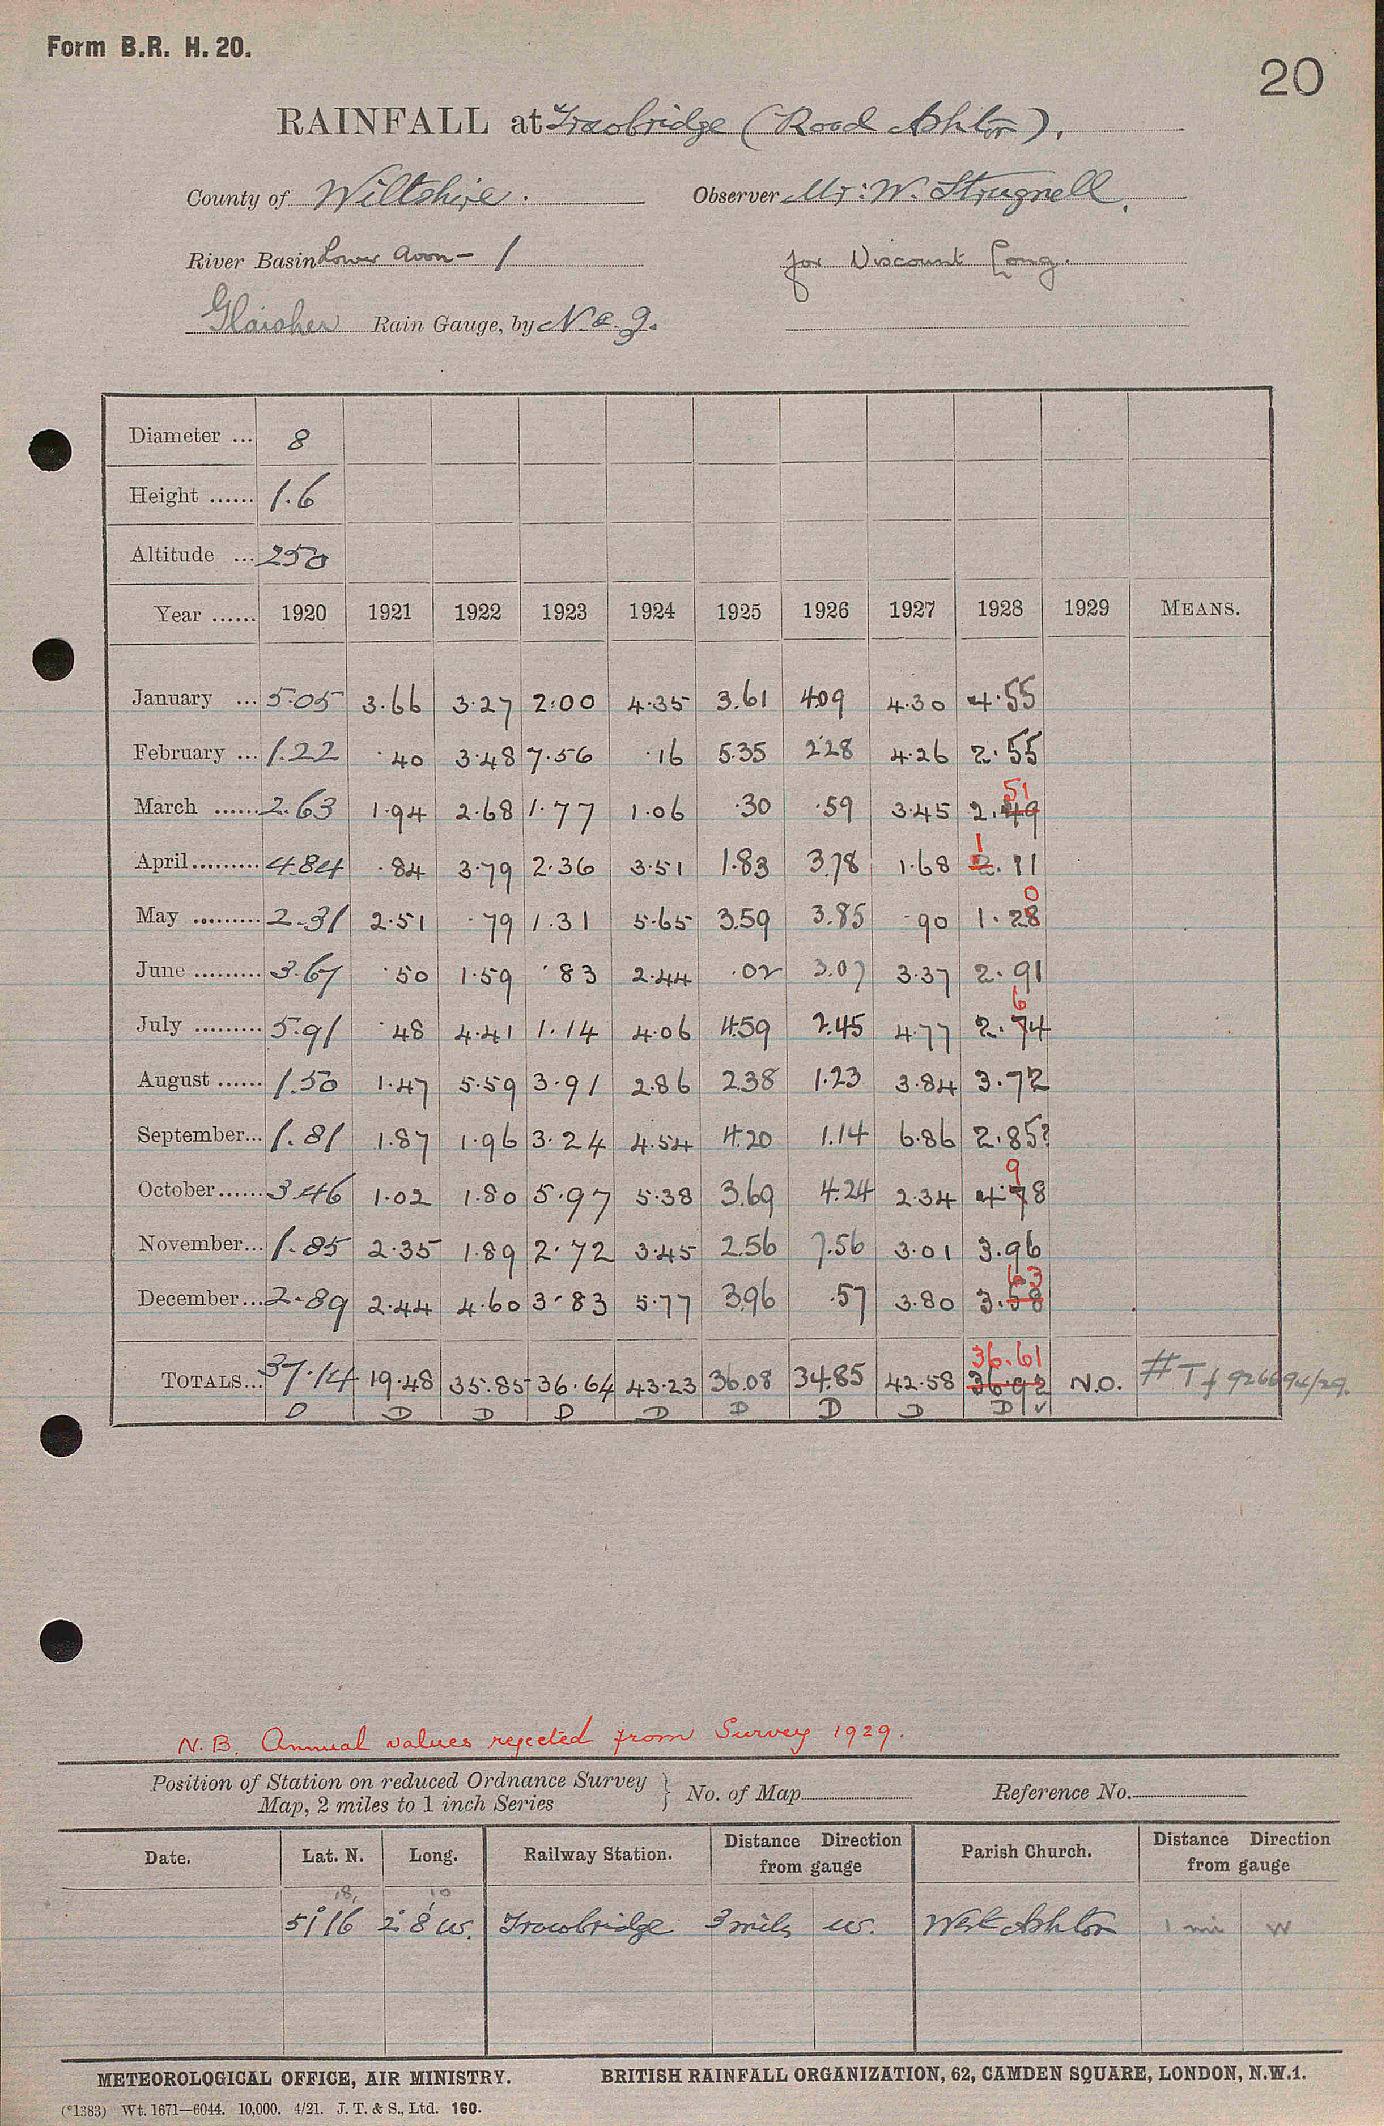 Form B.R. H. 20.
20
RAINFALL at Trowbridge (Rood Ashton).
County of Wiltshire. Observer Mr: W. Strugnell.
River Basin Lower Avon - 1 for Viscount Long.
Glaisher Rain Gauge, by N & Z.
Diameter ... 8
Height ...... 1.6
Altitude ... 250
Year ...... 1920 1921 1922 1923 1924 1925 1926 1927 1928 1929 MEANS.
January ... 5.05 3.66 3.27 2.00 4.35 3.61 4.09 4.30 4.55
February ... 1.22 .40 3.48 7.56 .16 5.35 2.28 4.26 2.55
51
March ...... 2.63 1.94 2.68 1.77 1.06 .30 .59 3.45 2.49
1
April ......... 4.84 .84 3.79 2.36 3.51 1.83 3.78 1.68 2.11
0
May ......... 2.31 2.51 .79 1.31 5.65 3.59 3.85 .90 1.28
June ......... 3.67 .50 1.59 .83 2.44 .02 3.07 3.37 2.91
6
July ......... 5.91 .48 4.41 1.14 4.06 4.59 2.45 4.77 2.74
August ...... 1.50 1.47 5.59 3.91 2.86 2.38 1.23 3.84 3.72
September... 1.81 1.87 1.96 3.24 4.54 4.20 1.14 6.86 2.85?
9
October ...... 3.46 1.02 1.80 5.97 5.38 3.69 4.24 2.34 4.78
November... 1.85 2.35 1.89 2.72 3.45 2.56 7.56 3.01 3.96
63
December... 2.89 2.44 4.60 3.83 5.77 3.96 .57 3.80 3.58
36.61
TOTALS... 37.14 19.48 35.85 36.64 43.23 36.08 34.85 42.58 36.92 N.O. # T f 926694/29.
D D D D D D D D D ✓
N.B. Annual values rejected from Survey 1929.
Position of Station on reduced Ordnance Survey Map, 2 miles to 1 inch Series } No. of Map Reference No.
Date. Lat. N. Long. Railway Station. Distance Direction from gauge Parish Church. Distance Direction from gauge
18, 10
51° 16 2° 8' W. Trowbridge 3 miles W. West Ashton 1 mi W
METEOROLOGICAL OFFICE, AIR MINISTRY. BRITISH RAINFALL ORGANIZATION, 62, CAMDEN SQUARE, LONDON, N.W.1.
(*1383) Wt. 1671—6044. 10,000. 4/21. J. T. & S., Ltd. 160.